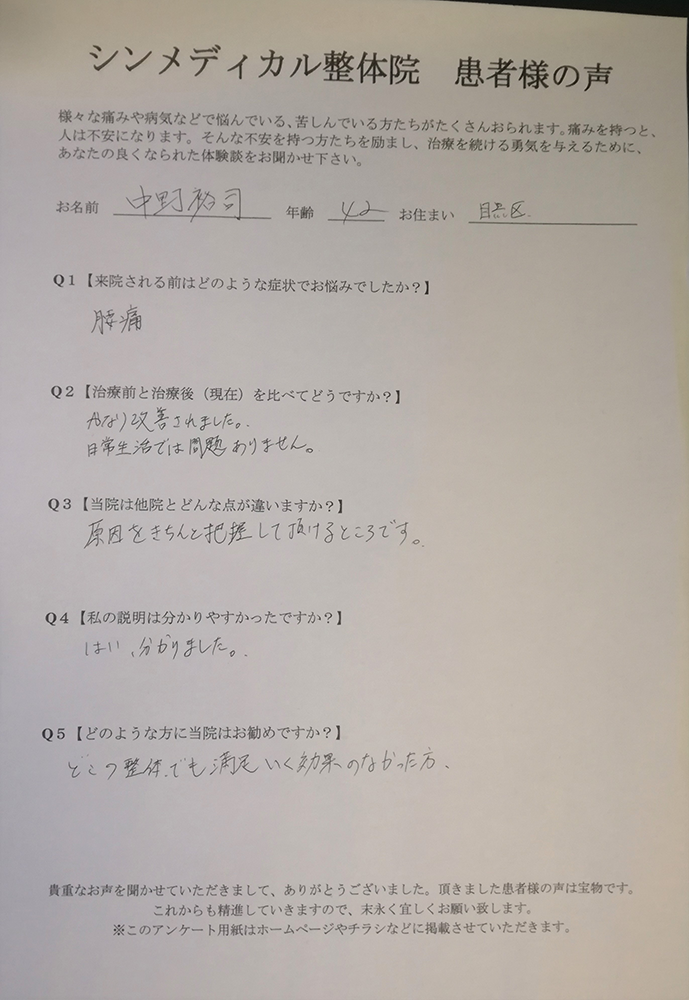 シンメディカル整体院　患者様の声
様々な痛みや病気などで悩んでいる、苦しんでいる方たちがたくさんおられます。痛みを持つと、
人は不安になります。そんな不安を持つ方たちを励まし、治療を続ける勇気を与えるために、
あなたの良くなられた体験談をお聞かせ下さい。
お名前 中野裕司 年齢 42 お住まい 目黒区
Q1【来院される前はどのような症状でお悩みでしたか？】
腰痛
Q2【治療前と治療後（現在）を比べてどうですか？】
かなり改善されました。
日常生活では問題ありません。
Q3【当院は他院とどんな点が違いますか？】
原因をきちんと把握して頂けるところです。
Q4【私の説明は分かりやすかったですか？】
はい、分かりました。
Q5【どのような方に当院はお勧めですか？】
どこの整体でも満足いく効果のなかった方、
貴重なお声を聞かせていただきまして、ありがとうございました。頂きました患者様の声は宝物です。
これからも精進していきますので、末永く宜しくお願い致します。
※このアンケート用紙はホームページやチラシなどに掲載させていただきます。